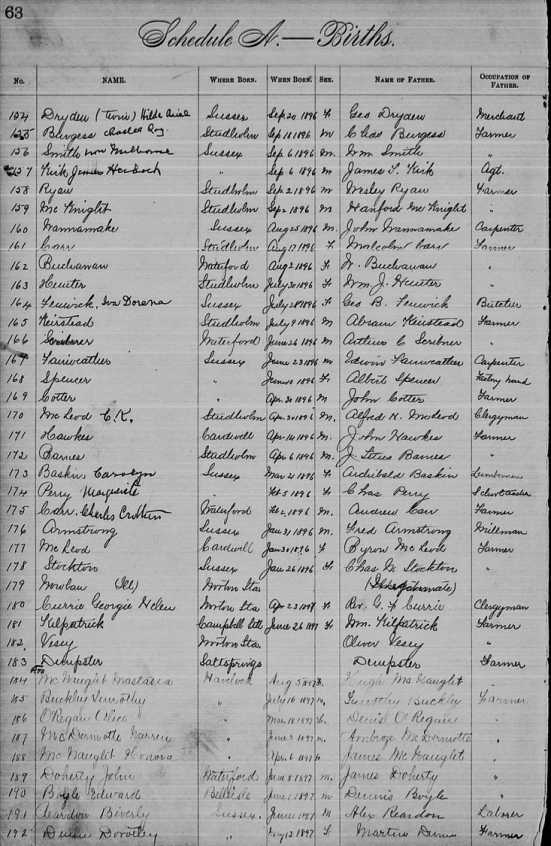 63
Schedule A.—Births.
No. NAME. WHERE BORN. WHEN BORN. SEX. NAME OF FATHER. OCCUPATION OF FATHER.
154 Dryden (Twin) Hilda Sussex Sep 20 1896 F Geo Dryden Merchant
155 Burgess Charles Roy Studholm Sep 18 1896 M C Geo Burgess Farmer
156 Smith Sussex Sep 6 1896 M. Wm Smith "
157 Kirk James " Sep 6 1896 M James T. Kirk Agt.
158 Ryan Studholm Sep 2 1896 M Wesley Ryan Farmer
159 McKnight Studholm Sep 2 1896 M Hanford McKnight "
160 Wannamake Sussex Aug 25 1896 M. John Wannamake Carpenter
161 Carr Studholm Aug 17 1896 F. Malcolm Carr Farmer
162 Buchanan Waterford Aug 2 1896 F W. Buchanan "
163 Hunter Studholm July 30 1896 F Wm J. Hunter "
164 Fenwick, Iva Dorena Sussex July 28 1896 F Geo B. Fenwick Butcher
165 Keirstead Studholm July 9 1896 M Abram Keirstead Farmer
166 Scribner Waterford June 26 1896 M Arthur C Scribner "
167 Fairweather Sussex June 23 1896 M Edwin Fairweather Carpenter
168 Spencer " June 1896 F Albert Spencer Factory hand
169 Cotter " Apr 30 1896 M John Cotter Farmer
170 McLeod C.K. Studholm Apr 20 1896 M. Alfred K. McLeod Clergyman
171 Hawkes Cardwell Apr 14 1896 M. John Hawkes Farmer
172 Barnes Studholm Apr 6 1896 M. J. Titus Barnes "
173 Baskin, Carolyn Sussex Mar 21 1896 F Archibald Baskin Lumberman
174 Perry Marguerite " Feb 5 1896 F Chas Perry School teacher
175 Carr, Charles Waterford Feb 2 1896 M Andrew Carr Farmer
176 Armstrong Sussex Jan 31 1896 M Fred Armstrong Millman
177 McLeod Cardwell Jan 30 1896 F Byron McLeod Farmer
178 Stockton Sussex Jan 26 1896 F Chas W. Stockton "
179 Nowlan (Ill) Norton Sta. (Illegitimate)
180 Currie Georgie Helen Norton Sta Apr 23 1897 F Rev. G. F Currie Clergyman
181 Kilpatrick Campbell Sett June 26 1897 F Wm. Kilpatrick Farmer
182 Vesey Norton Sta. Oliver Vesey
183 Dempster Saltsprings Dempster Farmer
184 McNaught Anastasia Hardock Aug 5 1897 Hugh McNaught "
185 Buckley Timothy " July 16 1897 M Timothy Buckley Farmer
186 O'Regan Alice " Mar 18 1897 F. Daniel O'Regan "
187 McDermotte Warren " 1897 M. Ambrose McDermotte "
188 McNaught Honora " Apr 6 1897 James McNaught "
189 Doherty John Waterford June 8 1897 M. James Doherty "
190 Boyle Edward Belleisle June 1897 M Dennis Boyle "
191 Reardon Beverly Sussex. June 1897 M Alex Reardon Laborer
192 Dorothy " 12 1897 F Martin Farmer